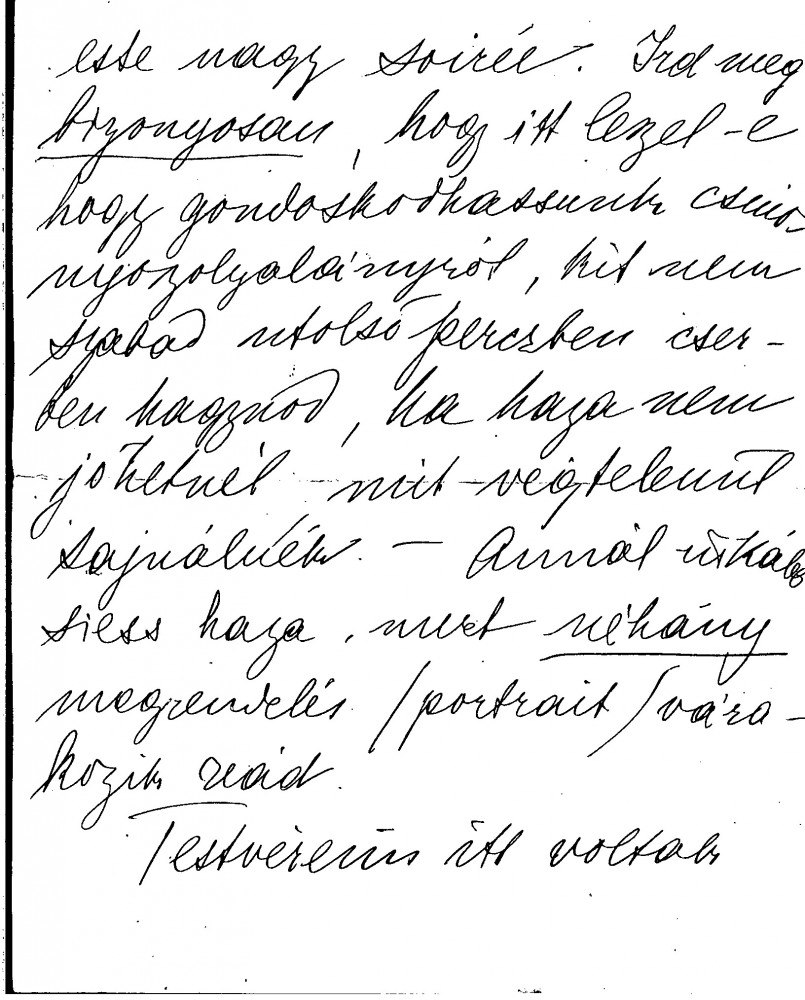 este nagy soirée. Ird meg
bizonyosan, hogy itt leszel-e
hogy gondoskodhassunk csinos
nyoszolyaleányról, kit nem
szabad utolsó perczben cser-
ben hagynod, ha haza nem
jöhetnél mit végtelenül
sajnálnék. - Annál inkább
siess haza, mert néhány
megrendelés /portrait/ vára-
kozik reád.
Testvéreim itt voltak